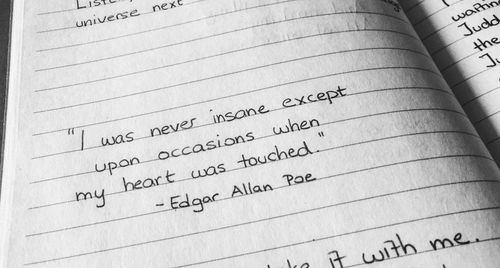 universe next
"I was never insane except
upon occasions when
my heart was touched."
- Edgar Allan Poe
it with me.
Judd
the